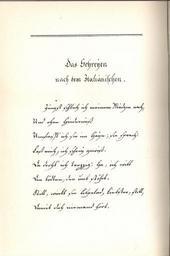 Das Schreyen
nach dem Italienischen.
Jüngst schlich ich meinem Mädchen nach,
Und ohne Hinderniß
Umfaßt' ich sie im Hain; sie sprach:
Laß mich, ich schrey gewiß.
Da droht' ich trotzig: Ha, ich will
Den tödten, der uns stört!
Still, winkt sie lispelnd, Liebster, still,
Damit dich niemand hört.